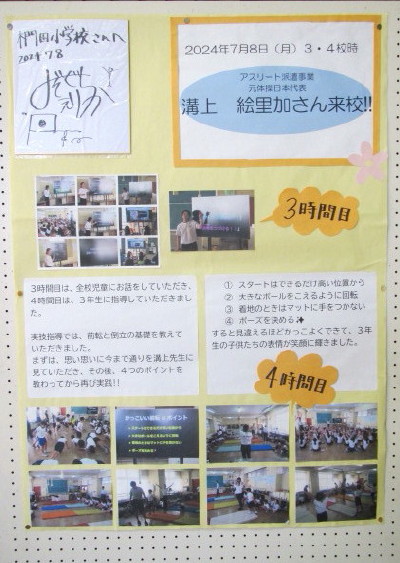 小学校さんへ
2024 7.8
2024年7月8日（月）3・4校時
アスリート派遣事業
元体操日本代表
溝上　絵里加さん来校!!
3時間目
3時間目は、全校児童にお話をしていただき、
4時間目は、3年生に指導していただきまし
た。
実技指導では、前転と倒立の基礎を教えて
いただきました。
まずは、思い思いに今まで通りを溝上先生に
見ていただき、その後、4つのポイントを
教わってから再び実践!!
① スタートはできるだけ高い位置から
② 大きなボールをこえるように回転
③ 着地のときはマットに手をつかない
④ ポーズを決める
すると見違えるほどかっこよくできて、3年
生の子供たちの表情が笑顔に輝きました。
4時間目
かっこいい前転 4 ポイント